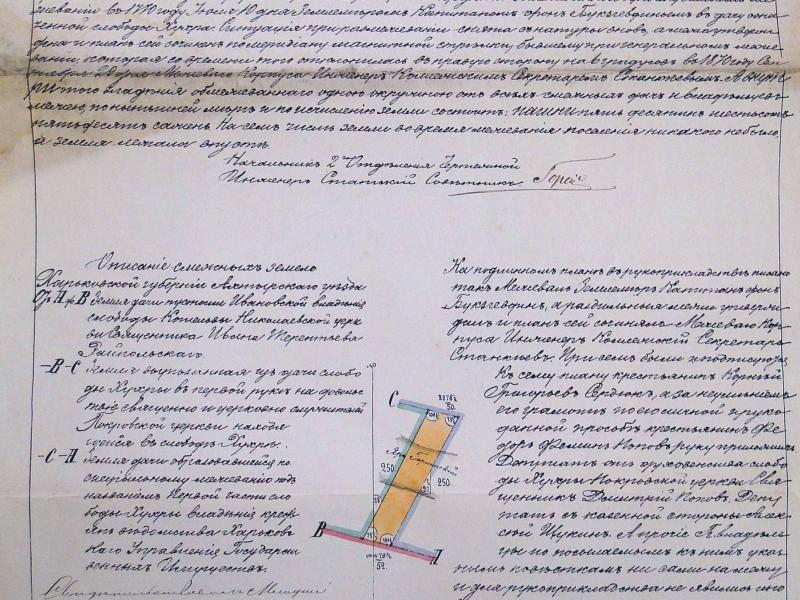 жевании въ 1770 году Іюля 10 дня Землемеромъ Капитаномъ фонъ Буксгевдинымъ въ дачу
ной слободы Хухра Ситуація при размежеваніи снята съ натуры вновь, а межа утверж
дена и планъ сей сочиненъ по меридіану магнитной стрѣлки, бывшему при генеральномъ меже
ваніи, которая со времени того отклонилась въ правую сторону на градусовъ въ 1870 году Сен
тября 22 дня Межеваго Корпуса Инженеръ Коллежскимъ Секретаремъ Станкевичемъ. А внут
ри того владѣнія обмежеваннаго одною окружною отъ всѣхъ смежныхъ дачъ и владѣльцевъ
межею, по нынѣшней мѣрѣ и по исчисленію земли состоитъ: пашни пять десятинъ шестьсотъ
пятьдесятъ сажень. На семъ числѣ земли во время межеванія поселенія никакого не было,
а земля лежала впустѣ.
Начальникъ 2 Отдѣленія Чертежной
Инженеръ Статскій Совѣтникъ
Описаніе смежныхъ земель
Харьковской губерніи Ахтырскаго уѣзда
От А до В Земля дачи пустоши Ивановской владѣнія
слободы Котельвы Николаевской церк
ви Священника Ивана Терентьева
Райпольскаго.
–В–С Земля вырѣзанная изъ дачи слобо
ды Хухры въ первой рукѣ на доволь
ствіе священно и церковно служителей
Покровской церкви находя
щейся въ слободѣ Хухрѣ.
–С–А Земля дачи образовавшейся по
спеціальному межеванію подъ
названіемъ Первой части сло
боды Хухры владѣнія кресть
янъ вѣдомства Харьков
скаго Управленія Государст
венныхъ Имуществъ.
С
В
А
250
250
50
52
На подлинномъ планѣ въ рукоприкладствѣ писано
такъ Межевалъ Землемеръ Капитанъ фонъ
Буксгевдинъ, а раздѣльныя межи утверж
далъ и планъ сей сочинялъ Межеваго Кор
пуса Инженеръ Коллежскій Секретарь
Станкевичъ. При семъ были и подписуюсь
Къ сему плану крестьянинъ Корній
Григорьевъ Сердюкъ, а за неумѣніемъ
его грамотѣ и по его личной и руко
данной просьбѣ крестьянинъ Фе
доръ Фоминъ Поповъ руку приложилъ.
Депутатъ отъ духовенства слобо
ды Хухры Покровской церкви Свя
щенникъ Димитрій Поповъ. Депу
татъ съ казенной стороны
Щукинъ. А прочіе владѣль
цы по посылаемымъ къ нимъ указ
нымъ повѣсткамъ ни сами на межу
и для рукоприкладства не явились